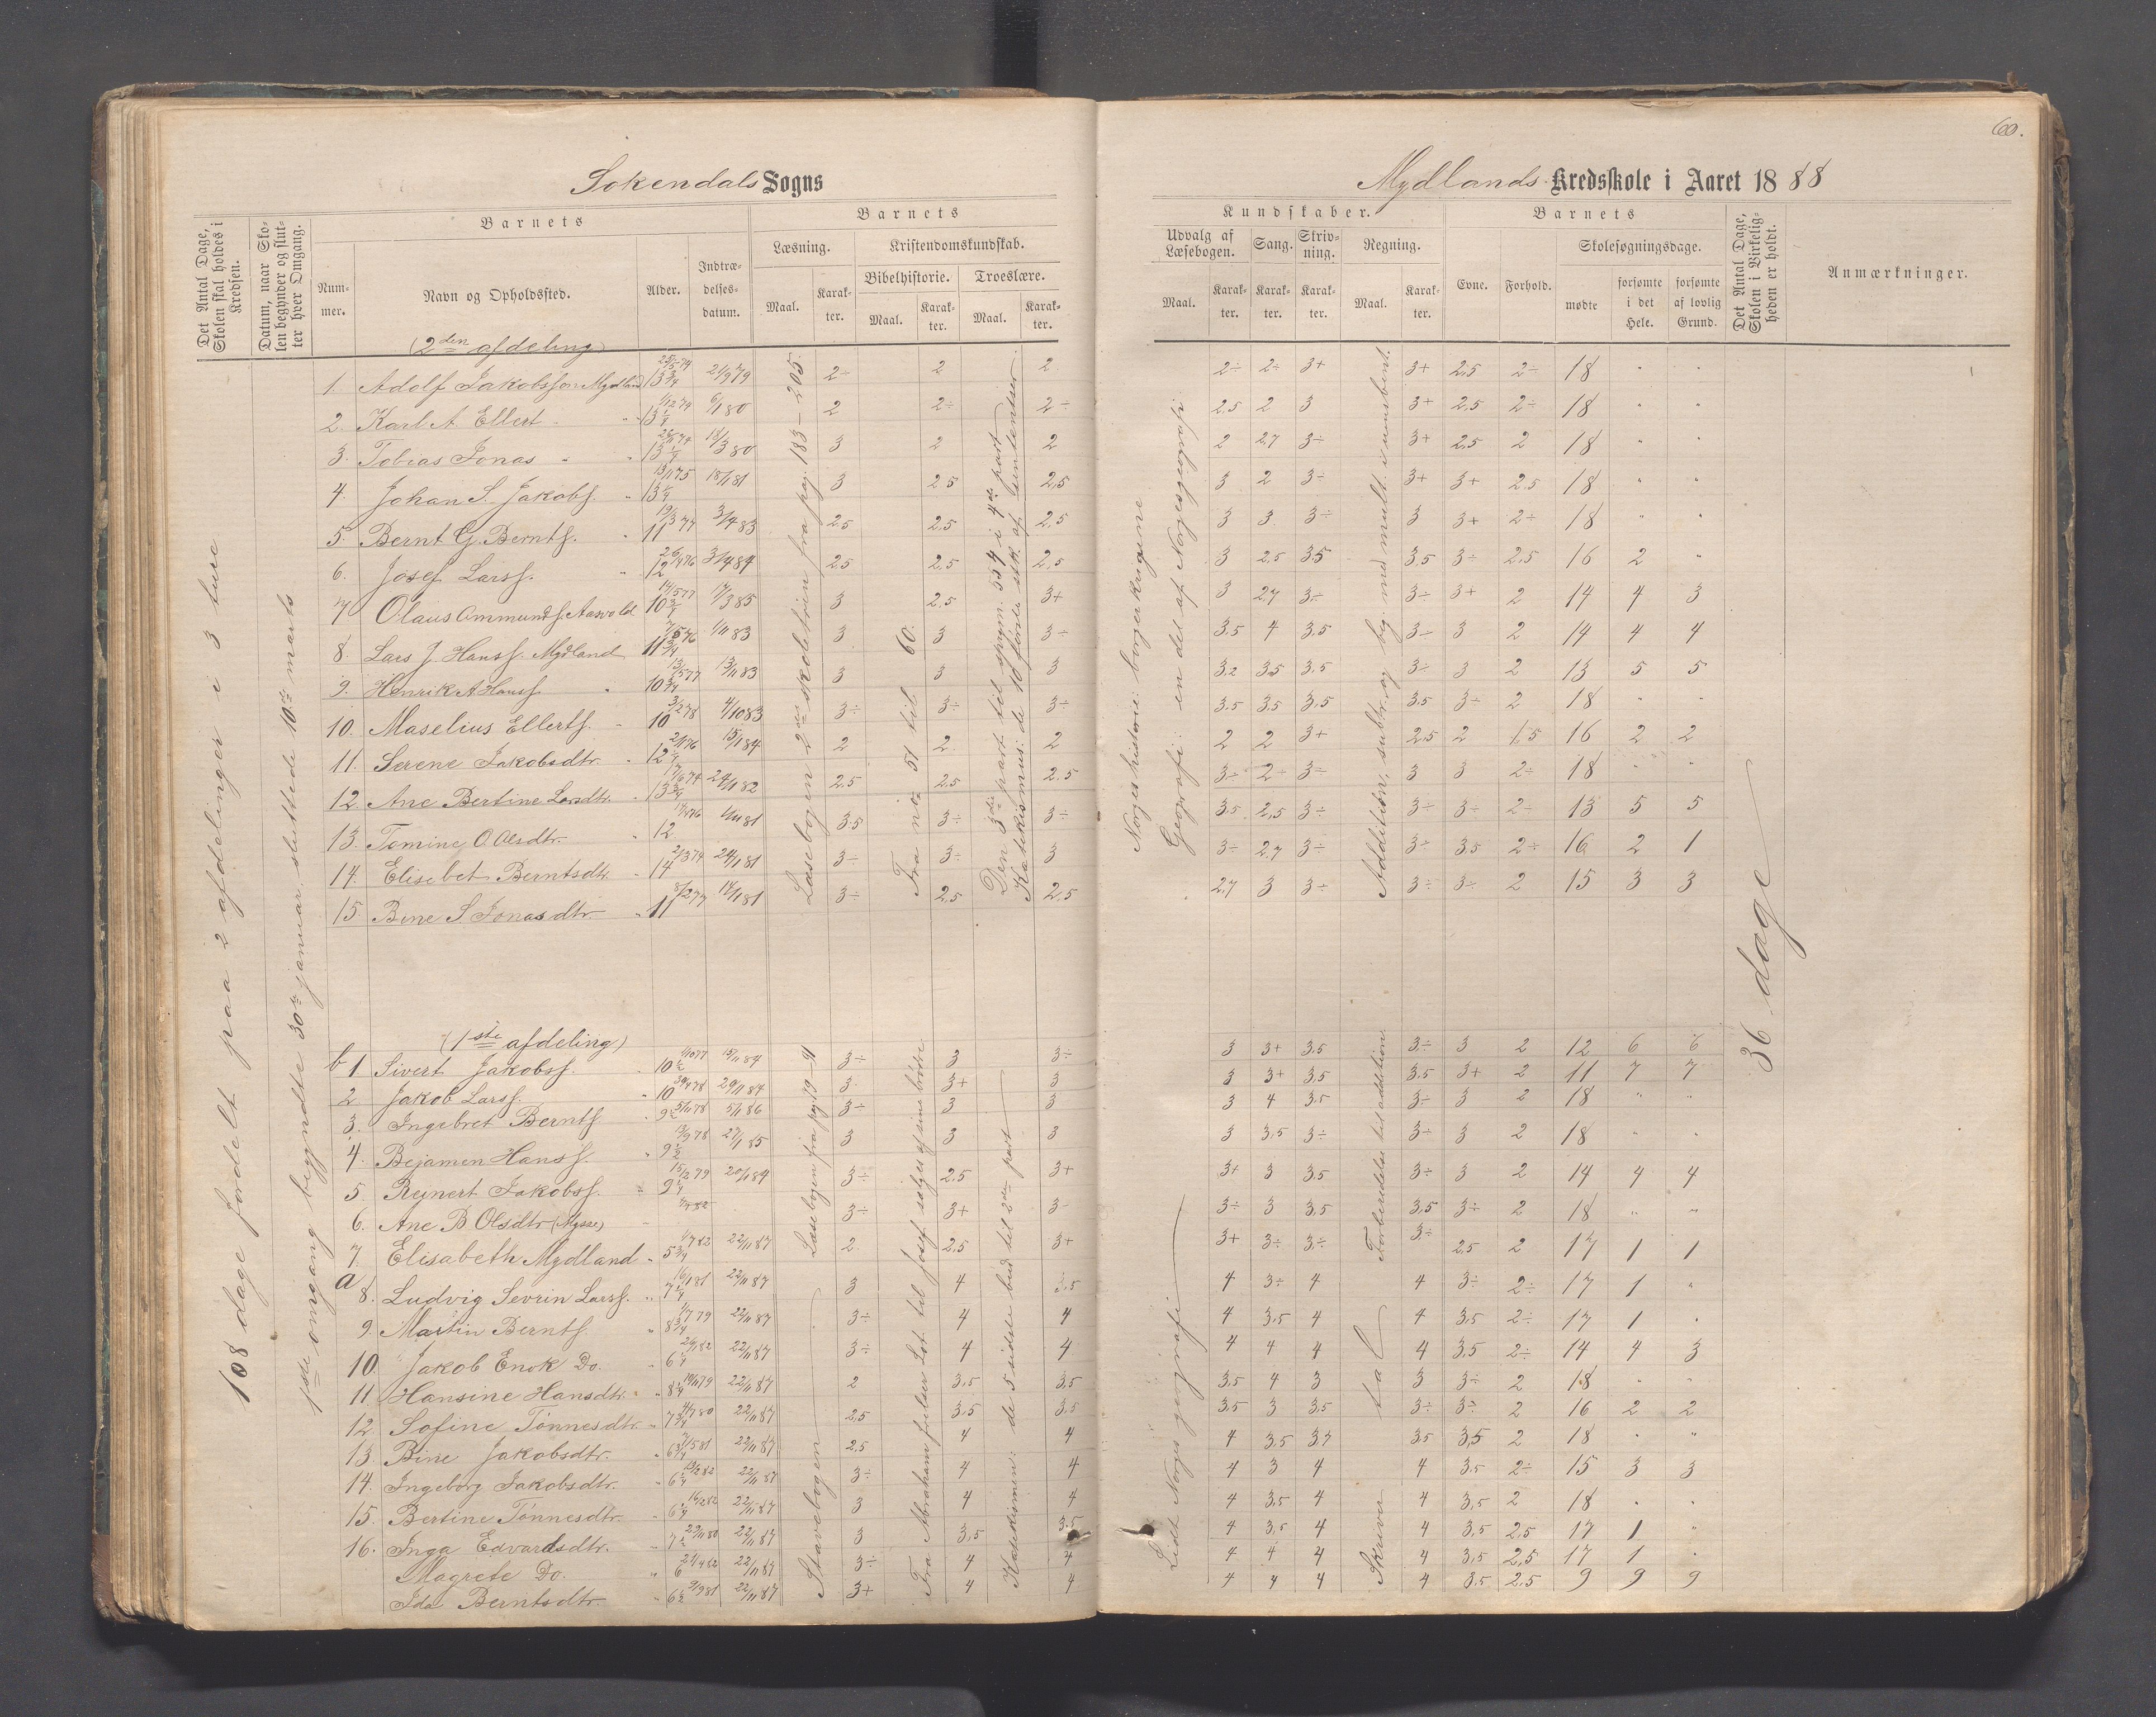 60.
Sokendals Sogns
Mydlands Kredsskole i Aaret 1888
Det Antal Dage, Skolen skal holdes i Kredsen.
Datum, naar Skolen begynder og slutter hver Omgang.
Barnets
Nummer.
Navn og Opholdssted.
Alder.
Indtrædelsesdatum.
Barnets
Læsning.
Maal.
Karakter.
Kristendomskundskab.
Bibelhistorie.
Maal.
Karakter.
Troeslære.
Maal.
Karakter.
Kundskaber.
Udvalg af Læsebogen.
Maal.
Karakter.
Sang.
Karakter.
Skrivning.
Karakter.
Regning.
Maal.
Karakter.
Barnets
Evne.
Forhold.
Skolesøgningsdage.
mødte
forsømte i det Hele.
forsømte af lovlig Grund.
Det Antal Dage, Skolen i Virkeligheden er holdt.
Anmærkninger.
108 dage fordelt paa 2 afdelinger i 3 ture
1ste omgang begyndte 30te januar, sluttede 10de marts
(2den afdeling)
1. Adolf Jakobsson Mydland 13 3/4 21/9 79 2÷ 2 2 2÷ 2÷ 3+ 3+ 2,5 2÷ 18 " "
2. Karl A. Ellert " 13 1/4 6/1 80 2 2÷ 2÷ 2,5 2 3 3+ 2,5 2÷ 18 " "
3. Tobias Jonas " 13 1/4 18/3 80 3 2 2 2 2,7 3÷ 3+ 2,5 2 18 " "
4. Johan S. Jakobs. " 13 1/4 18/1 81 3 2,5 2,5 3 2 3÷ 3+ 3+ 2,5 18 " "
5 Bernt G. Bernts. " 11 3/4 83 2,5 2,5 2,5 3 3 3÷ 3 3+ 2÷ 18 " "
6. Josef Larss. " 12 3/4 84 2,5 2,5 2,5 3 2,5 3,5 3,5 3÷ 2,5 16 2 "
7 Olaus Ommunds. Aasvold 10 3/4 17/3 85 3 2,5 3+ 3 2,7 3÷ 3÷ 3+ 2 14 4 3
8. Lars J. Hanss. Mydland 11 3/4 1/11 83 3 3 3÷ 3,5 4 3,5 3÷ 3 2 14 4 4
9. Henrik A Hanss. " 10 3/4 13/11 83 3 3 3 3,2 3,5 3,5 3÷ 3 2 13 5 5
10. Maselius Ellerts. " 10 4/10 83 3÷ 3÷ 3÷ 3,5 3,5 3,5 3,5 3÷ 2 18 " "
11. Serene Jakobsdtr. " 12 1/4 15/1 84 2 2 2 2 2 3+ 2,5 2 1,5 16 2 2
12. Ane Bertine Larsdtr. " 13 3/4 24/1 82 2,5 2,5 2,5 3÷ 2÷ 3÷ 3 3 2÷ 18 " "
13. Tomine O. Olsdtr. " 12 3,5 3÷ 3÷ 3,5 2,5 3÷ 3÷ 3÷ 2÷ 13 5 5
14. Elisebet Berntsdtr. " 14 24/1 81 3÷ 3÷ 3 3÷ 2,7 3÷ 3÷ 3,5 2÷ 16 2 1
15. Bine S Jonasdtr " 11 18/1 81 3÷ 2,5 2,5 2,7 3 3÷ 3÷ 3÷ 2 15 3 3
Læsebogen 2den skoletrin fra pag. 183-205.
Fra no 51 til 60.
Den 3die part til spgm. 554 i 4de part
Katekismus: de 10 første stk. af sententser
Norges historie: borgerkrigene
Geografi: en del af Norges geografi
Addition, subtr. og beg. med mult. i ubenbent.
36 dage
(1ste afdeling)
b 1 Sivert Jakobss. " 10 1/2 15/11 84 3÷ 3 3÷ 3 3+ 3,5 3÷ 3 2 12 6 6
2. Jakob Larss. " 10 29/11 84 3 3+ 3 3 3+ 3,5 3,5 3+ 2 11 7 7
3. Ingebret Bernts " 9 1/2 5/1 86 3÷ 3 3 3 4 3,5 3÷ 3 2 18 " "
4. Bejamen Hanss. " 9 1/2 27/1 85 3 3 3 3 3,5 3÷ 3÷ 3 2 18 " "
5. Reinert Jakobss. " 9 1/4 20/1 84 3÷ 2,5 3+ 3+ 3 3,5 3÷ 3 2 14 4 4
6. Ane B Olsdtr (Mysse) 3÷ 3+ 3÷ 3÷ 3 3,5 3,5 3÷ 2 18 " "
7. Elisabeth Mydland " 5 3/4 22/11 87 2 2,5 3+ 3+ 3÷ 3÷ 3÷ 2,5 2 17 1 1
a 8. Ludvig Sevrin Larss. " 7 1/4 22/11 87 3 4 3,5 4 3÷ 4 4 3÷ 2÷ 17 1 "
9. Martin Bernts " 8 3/4 22/11 87 3÷ 4 4 4 3,5 4 4 3,5 2÷ 17 1 "
10. Jakob Enok Do. " 6 1/4 22/11 87 3÷ 4 4 4 4 4 4 3,5 2÷ 14 4 3
11 Hansine Hansdtr. " 8 1/4 22/11 87 2 3,5 3,5 3,5 4 3 3 3÷ 2 18 " "
12. Sofine Tønnesdtr " 7 3/4 22/11 87 2,5 3,5 3,5 3,5 3 3,5 3÷ 3÷ 2 16 2 2
13. Bine Jakobsdtr. " 6 3/4 22/11 87 2,5 4 4 4 3,5 3,7 3,5 3,5 2 18 " "
14. Ingeborg Jakobsdtr. " 6 1/4 22/11 87 3÷ 4 4 4 3 4 4 3,5 2÷ 15 3 3
15. Bertine Tønnesdtr. " 6 1/4 22/11 87 3 4 4 4 3,5 4 4 3,5 2 18 " "
16. Inga Edvardsdtr. " 7 1/2 22/11 87 3 3,5 3,5 4 3,5 4 4 3,5 2,5 17 1 "
Magrete Do. " 6 22/11 87 3÷ 4 4 4 4 4 4 3,5 2,5 17 1 "
Ida Berntsdtr. " 6 1/2 22/11 87 3+ 4 4 4 4 4 4 3,5 2,5 9 9 9
Læsebogen fra pag. 19-91
Stavebogen
Fra Abraham frelser Lot til Josef sælges af sine brödre
Katekismen: de 5 sidste bud til 2den part
Lidt Norges geografi
Forberedelse til addition
Skriver tal